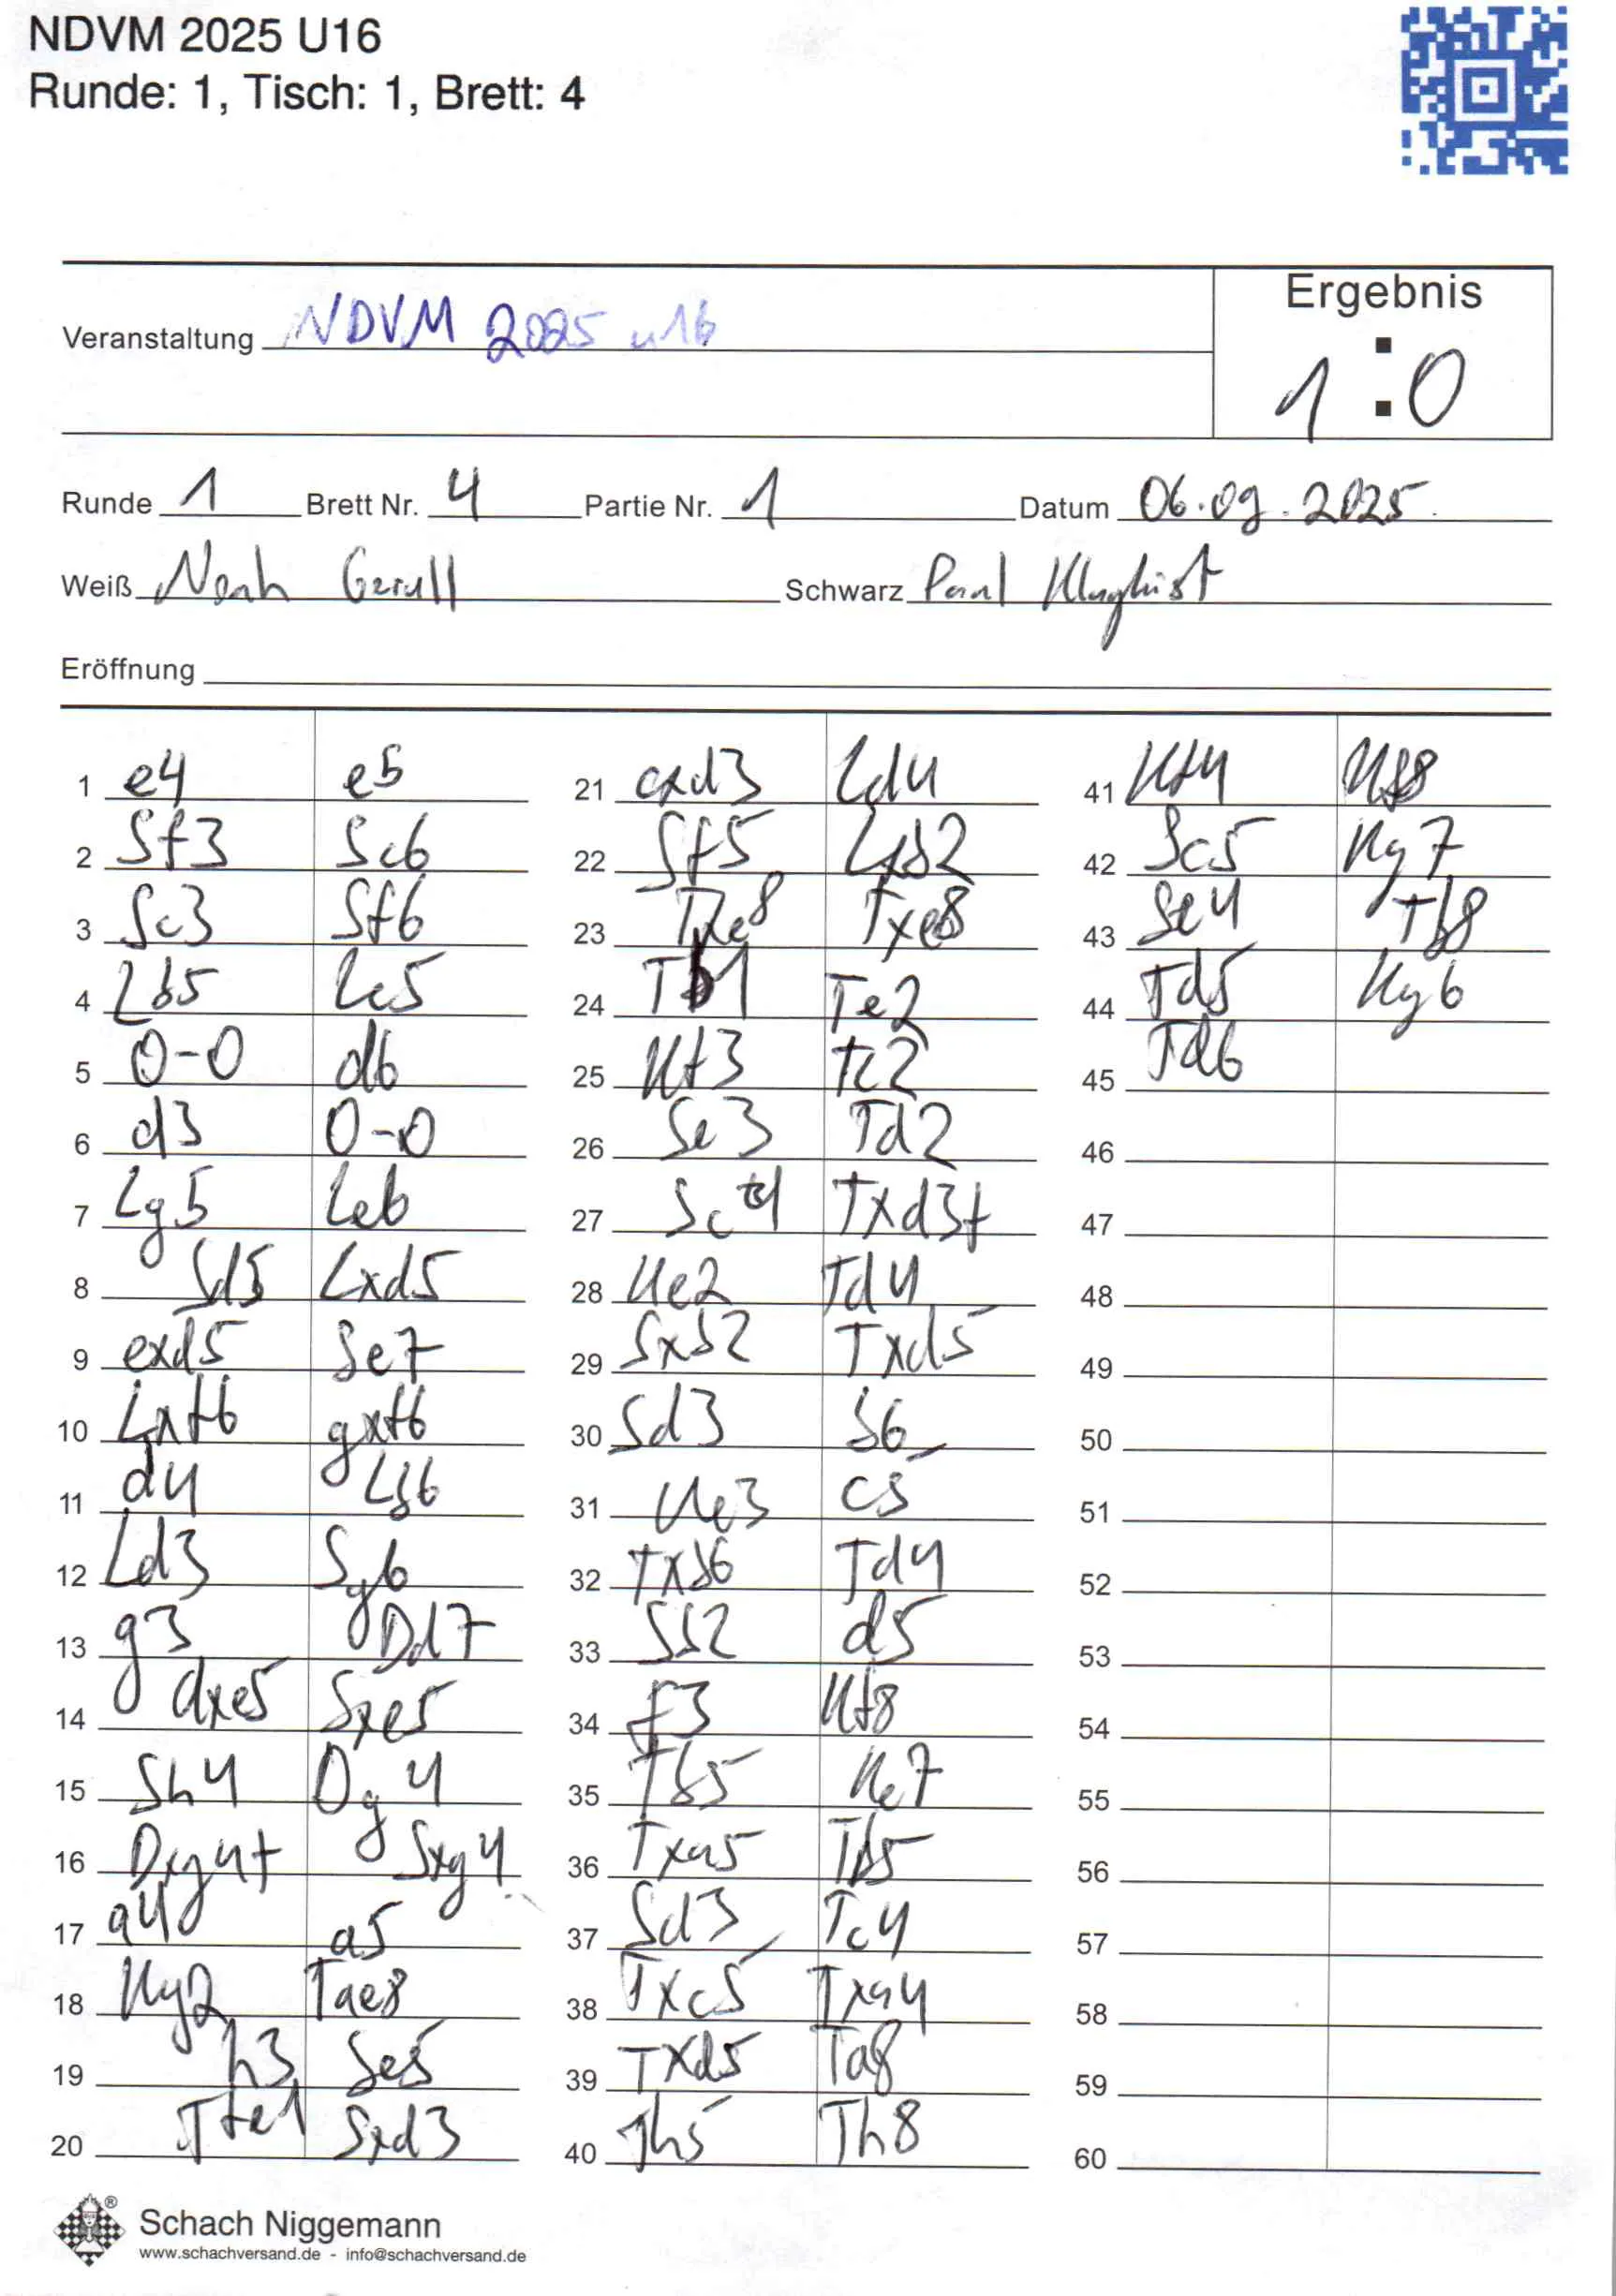 NDVM 2025 U16
Runde: 1, Tisch: 1, Brett: 4
Veranstaltung NDVM 2025 u16
Ergebnis
1 : 0
Runde 1 Brett Nr. 4 Partie Nr. 1 Datum 06.09.2025
Weiß Noah Gerull Schwarz Paul
Eröffnung
1 e4 e5 21 cxd3 Ld4 41 Kf4 Kf8
2 Sf3 Sc6 22 Sf5 Lxb2 42 Sc5 Kg7
3 Sc3 Sf6 23 Txe8 Txe8 43 Se4 Tb8
4 Lb5 Lc5 24 Tb1 Te2 44 Td5 Kg6
5 0-0 d6 25 Kf3 Tc2 45 Td6
6 d3 0-0 26 Se3 Td2 46
7 Lg5 Le6 27 Sc4 Txd3+ 47
8 Sd5 Lxd5 28 Ke2 Td4 48
9 exd5 Se7 29 Sxb2 Txd5 49
10 Lxf6 gxf6 30 Sd3 b6 50
11 d4 Lb6 31 Ke3 c5 51
12 Ld3 Sg6 32 Txb6 Td4 52
13 g3 Dd7 33 Sb2 d5 53
14 dxe5 Sxe5 34 f3 Kf8 54
15 Sh4 Dg4 35 Tb5 Ke7 55
16 Dxg4+ Sxg4 36 Txa5 Tb5 56
17 a4 a5 37 Sd3 Tc4 57
18 Kg2 Tae8 38 Txc5 Txa4 58
19 h3 Se5 39 Txd5 Ta8 59
20 Tfe1 Sxd3 40 Th5 Th8 60
Schach Niggemann
www.schachversand.de - info@schachversand.de